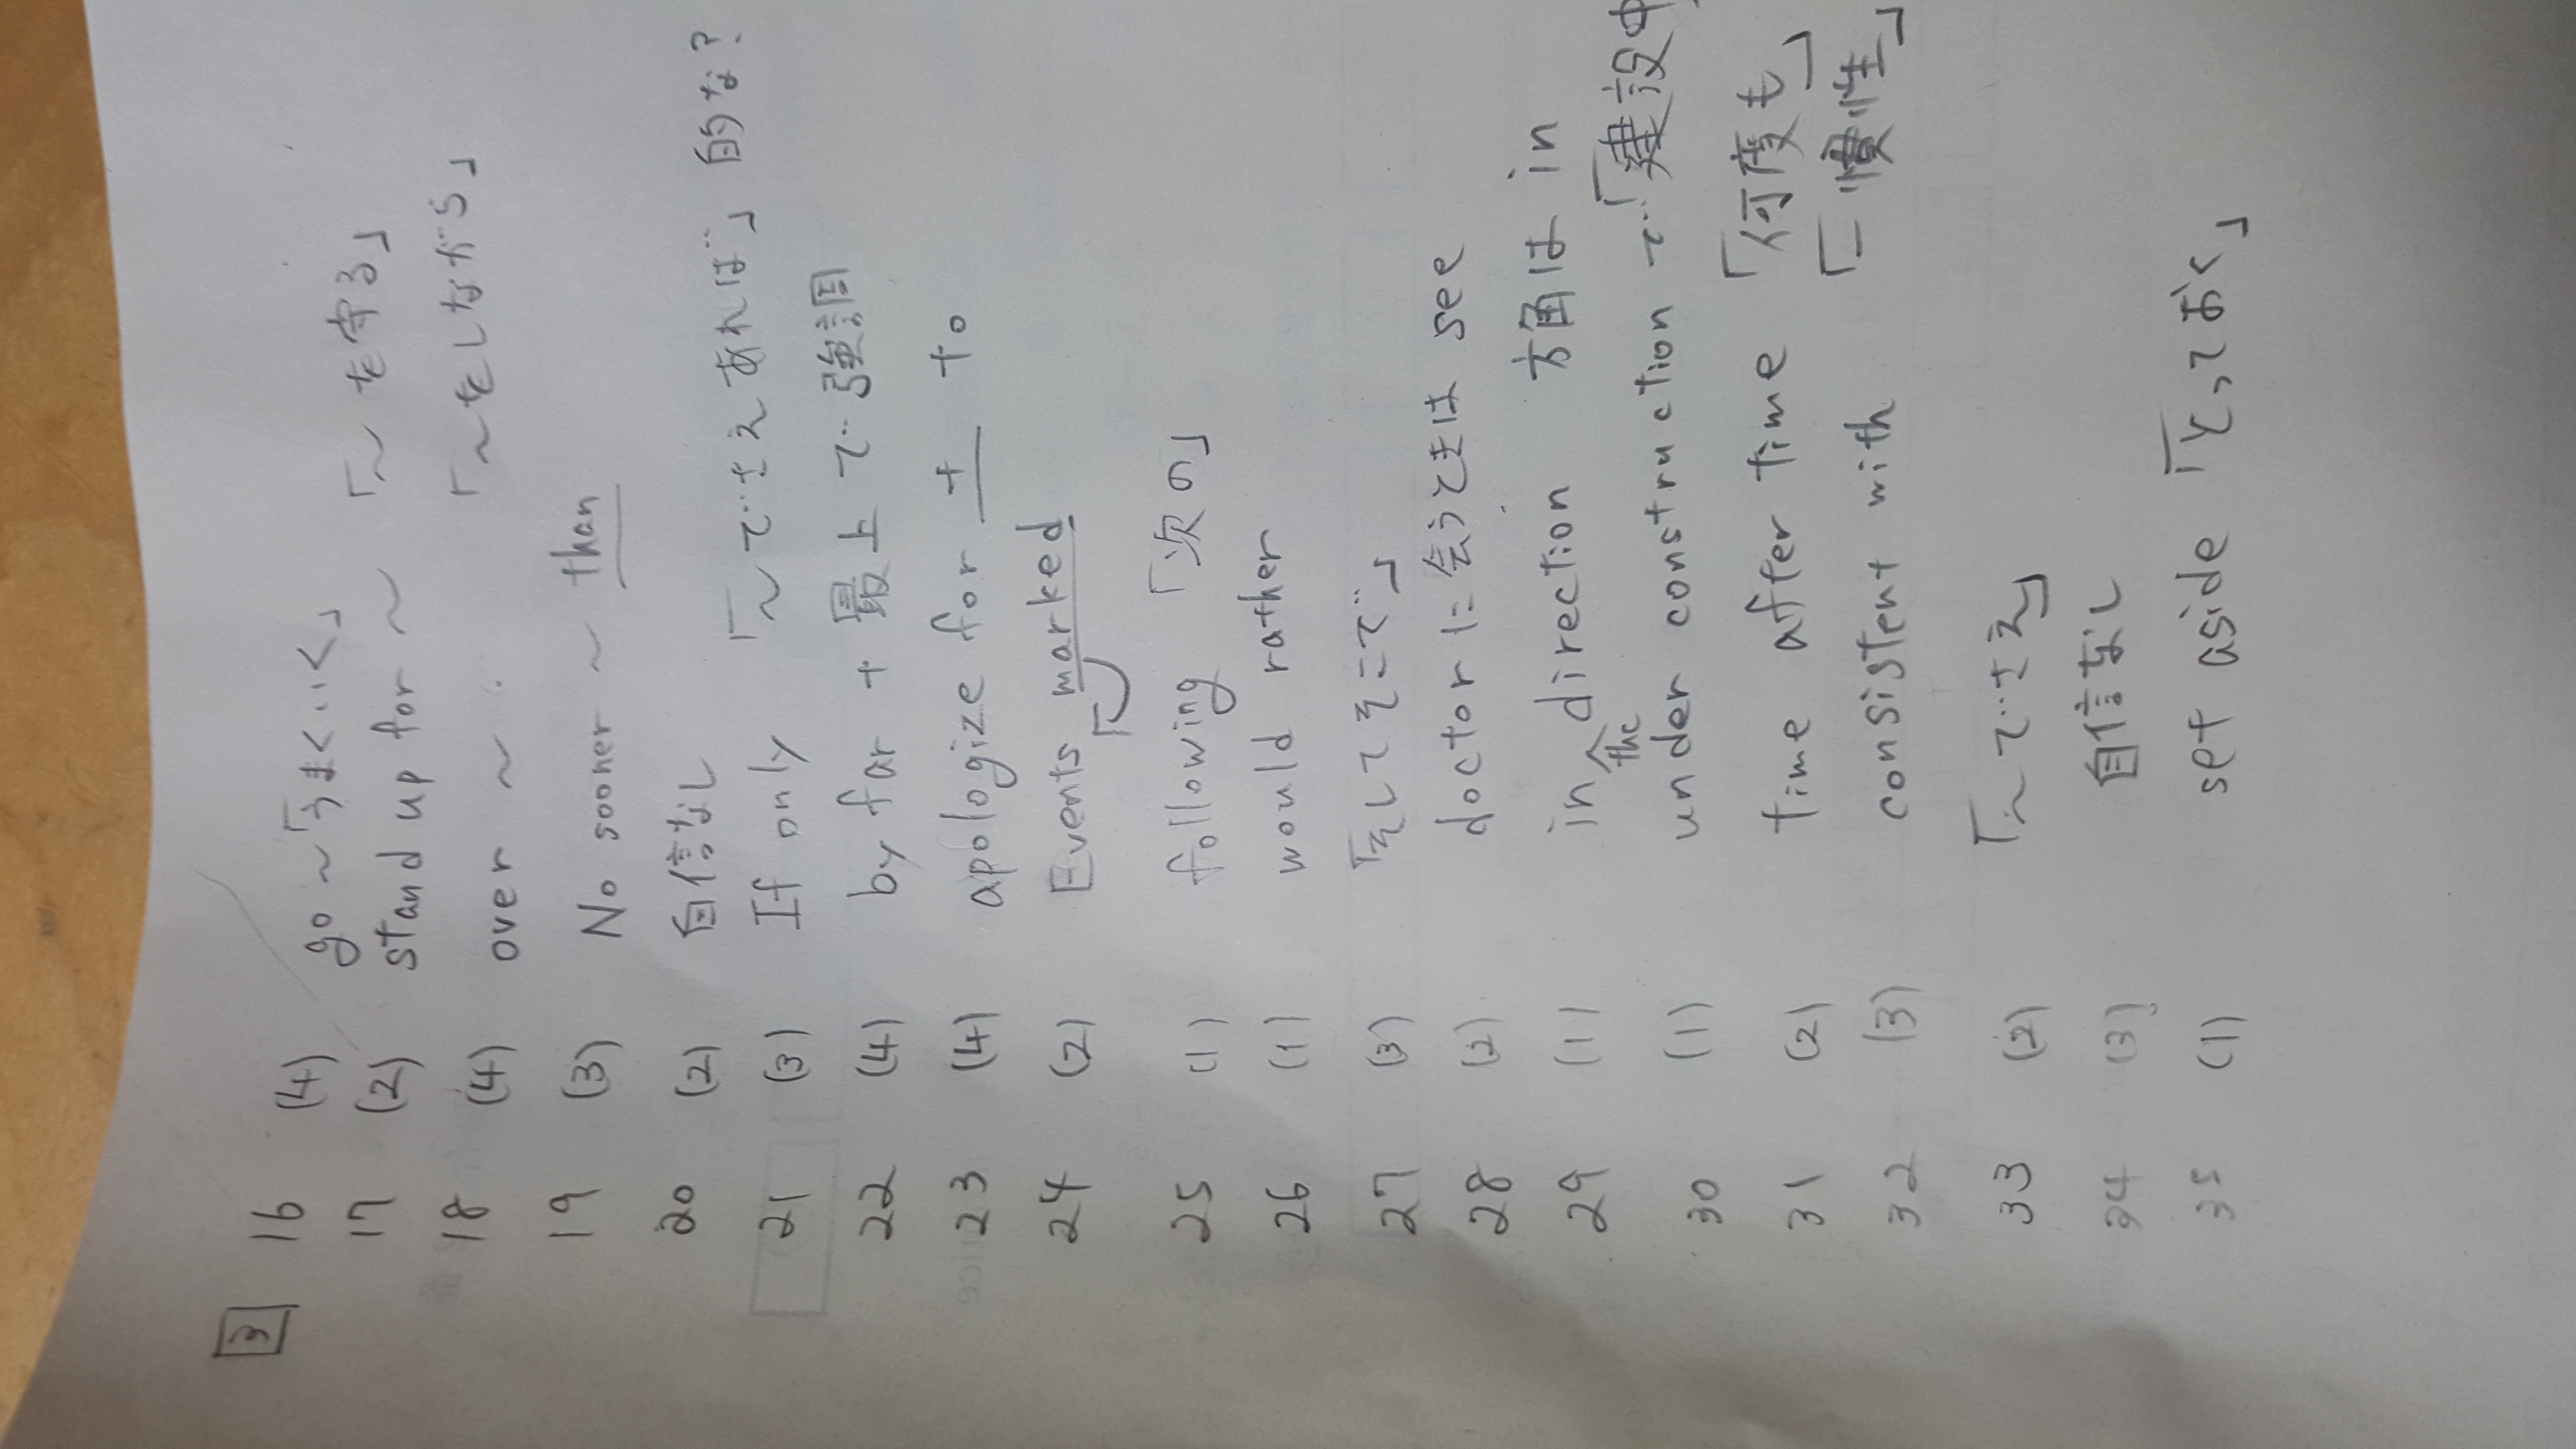 3
16 (4) go ~「うまくいく」
17 (2) stand up for ~ 「~を守る」
18 (4) over ~ 「~をしながら」
19 (3) No sooner ~ than
20 (2) 自信なし
21 (3) If only 「~でさえあれば」的な?
22 (4) by far + 最上で強調
23 (4) apologize for + to
24 (2) Events marked
25 (1) following 「次の」
26 (1) would rather
27 (3) 「そしてそこで」
28 (2) doctorに会うときは see
29 (1) in the direction 方角は in
30 (1) under construction で「建設中
31 (2) time after time 「何度も」
32 (3) consistent with 「一慣性」
33 (2) 「~でさえ」
34 (3) 自信なし
35 (1) set aside 「とっておく」